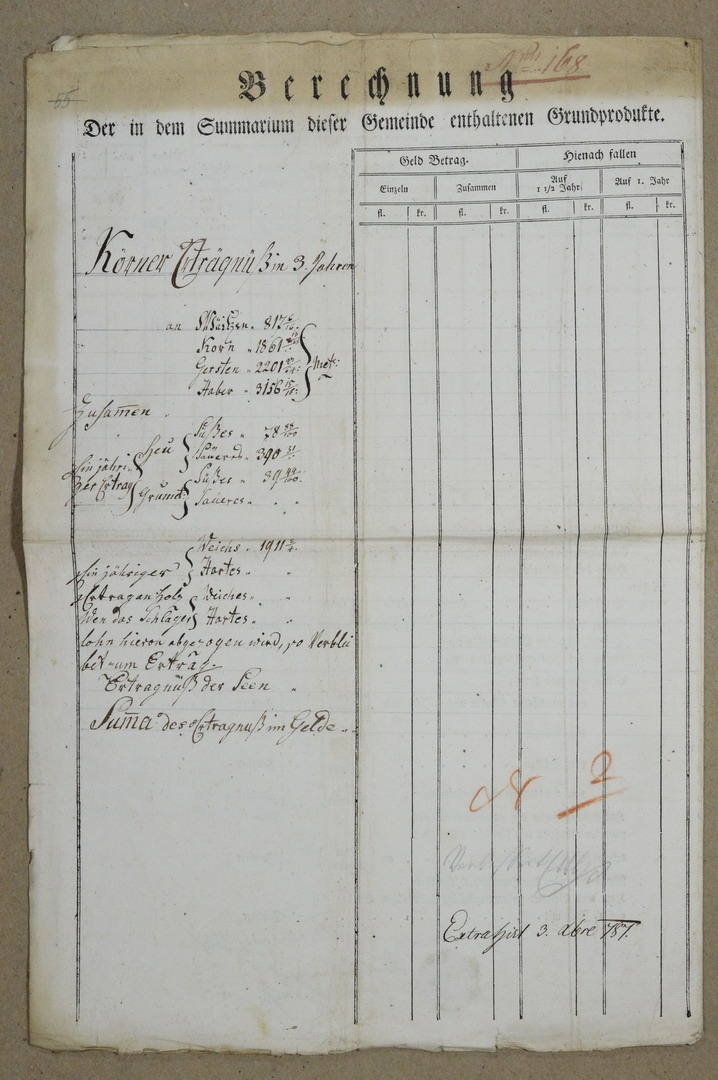 55
Nro 168
Berechnung
Der in dem Summarium dieser Gemeinde enthaltenen Grundprodukte.
Geld Betrag.
Hienach fallen
Einzeln
Zusammen
Auf 1 1/2 Jahr
Auf 1. Jahr
fl. kr. fl. kr. fl. kr. fl. kr.
Körner Erträgnüß in 3. Jahren
an Waitzen 817
Korn 1861
Gersten 2201
Metz:
Haber 3156
Zusam̄en
Süßes 78
Heu
Saueres 390
Ein jähri-
Süßes 39
ger Ertrag
Grumet
Saueres
Weichs 1911
Ein jähriger
Hartes
Ertrag an Holz
Weiches
Wen das Schläger
Hartes
lohn hievon abgezogen wird, so Verblei
bet zum Ertrag
Erträgnüß der Seen
Sum̄a des Ertragnuß im Gelde
N 2
Extrahirt 3. 787.